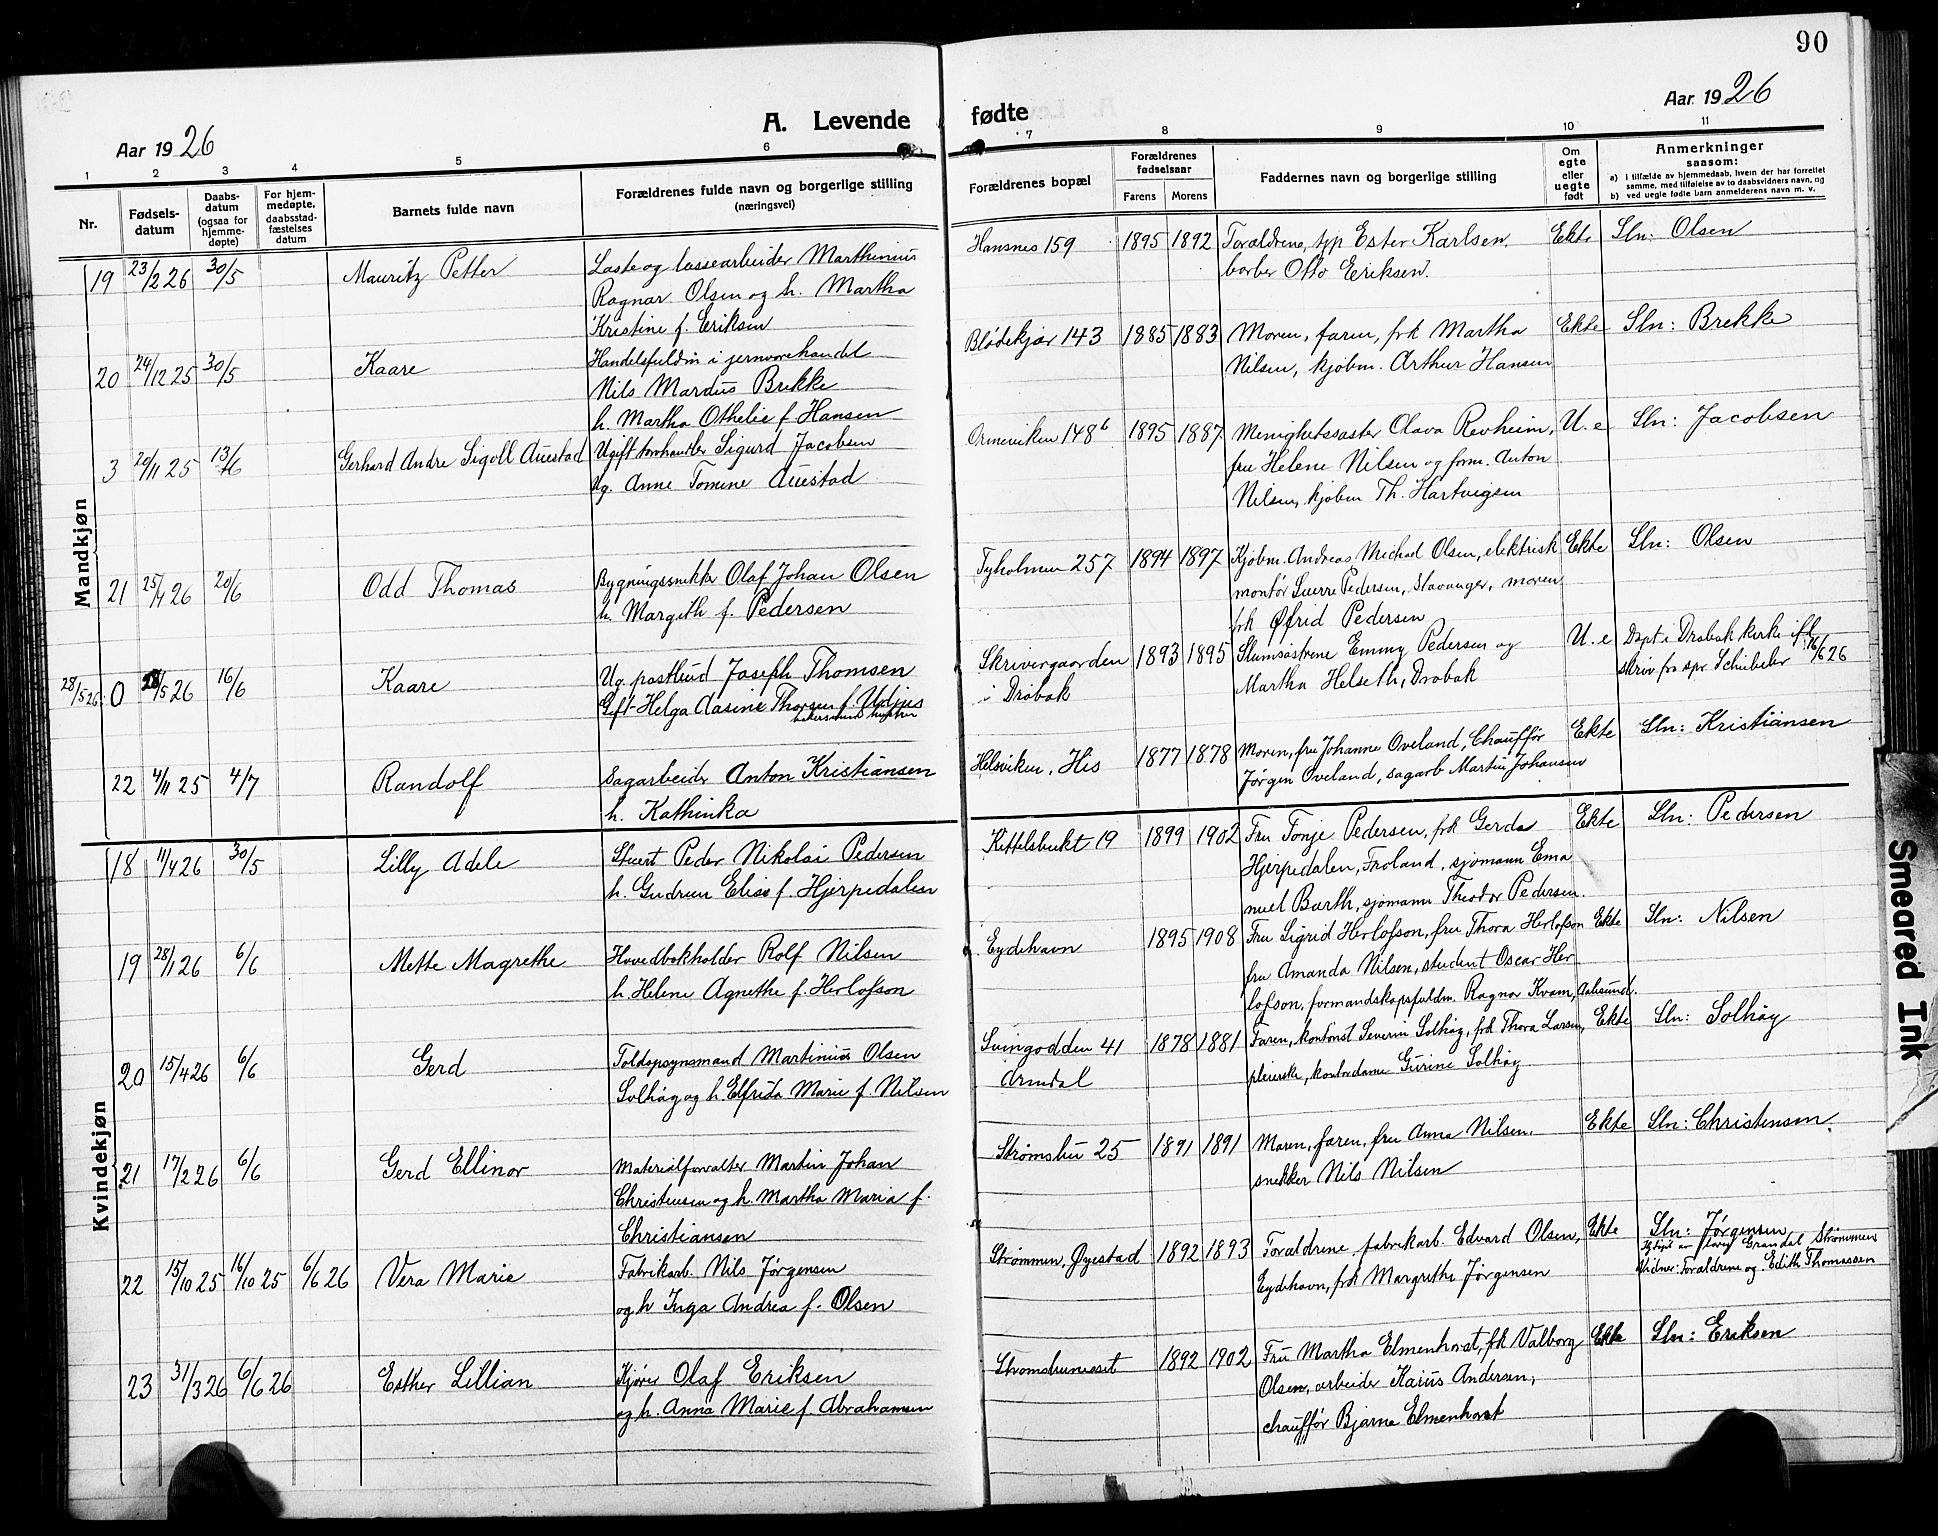 90
Aar 1926
A. Levende
fødte
Aar 1926
1 2 3 4 5 6
7 8 9 10 11
Nr.
Fødsels-
datum
Daabs-
datum
(ogsaa for
hjemme-
døpte)
For hjem-
medøpte,
daabsstad-
fæstelses
datum
Barnets fulde navn
Forældrenes fulde navn og borgerlige stilling
(næringsvei)
Forældrenes bopæl
Forældrenes
fødselsaar
Farens Morens
Faddernes navn og borgerlige stilling
Om
egte
eller
uegte
født
Anmerkninger
saasom:
a) I tilfælde av hjemmedaab, hvem der har forrettet
samme, med tilføielse av to daabsvidners navn, og
b) ved uegte fødte barn anmelderens navn m. v.
Mandkjøn
19 23/2 26 30/5 Mauritz Petter
Laste og lossearbeider Marthinius
Ragnar Olsen og h. Martha
Kristine f. Eriksen
Hansnes 159 1895 1892
Foraldrene, spp Ester Karlsen,
barber Otto Eriksen.
Ekte Sln: Olsen
20 24/12 25 30/5 Kaare
Handelsfuldm i jernvarehandel
Nils Mardus Brekke
h. Martha Othelie f. Hansen
Blødekjær 143 1885 1883
Moren, faren, frk Martha
Nilsen, kjøbm. Arthur Hansen
Ekte Sln: Brekke
3 20/11 25 13/6 Gerhard Andre Sigoll Auestad
Ugift Sigurd Jacobsen
Ug. Anne Tomine Auestad
Ormeviken 148b 1895 1887
Menighetssøster Olava Revheim,
fru Helene Nilsen og form. Anton
Nilsen, kjøbm Th. Hartvigsen
U. e Sln: Jacobsen
21 25/4 26 20/6 Odd Thomas
Bygningssnekker Olaf Johan Olsen
h. Margith f. Pedersen
Tyholmen 257 1894 1897
Kjøbm. Andreas Michael Olsen, elektrisk
montør Sverre Pedersen, Stavanger, moren
frk Øfrid Pedersen
Ekte Sln: Olsen
28/5 26 0 /5 26 16/6 Kaare
Ug. postbud Joseph Thomsen
Gift Helga Aasine Thorsen f.
Skrivergaarden
i Drøbak 1893 1895
Slumsøstrene Emmy Pedersen og
Martha Helseth, Drøbak
U. e Døpt i Drøbak kirke ifl
skriv fra spr. Schübeler 16/6 26
22 4/11 25 4/7 Randolf
Sagarbeider Anton Kristiansen
h. Kathinka
Helsviken, His 1877 1878
Moren, fru Johanne Oveland, Chauffør
Jørgen Oveland, sagarb Martin Johansen
Ekte Sln: Kristiansen
Kvindekjøn
18 11/4 26 30/5 Lilly Adele
Stuert Peder Nikolai Pedersen
h. Gudrun Elise f. Hjerpedalen
Kittelsbukt 19 1899 1902
Fru Tonje Pedersen, frk Gerda
Hjerpedalen, Froland, sjømann Ema
nuel Barth, sjømann Theodor Pedersen.
Ekte Sln: Pedersen
19 28/1 26 6/6 Mette Magrethe
Hovedbokholder Rolf Nilsen
h. Helene Agnethe f. Herlofson
Eydehavn 1895 1908
Fru Sigrid Herlofson, fru Thora Herlofson
fru Amanda Nilsen, student Oscar Her
lofson, formandskapsfuldm. Ragnar Kvam, Aalesund.
Ekte Sln: Nilsen
20 15/4 26 6/6 Gerd
Toldopsynsmand Martinius Olsen
Solhøg og h. Elfrida Marie f. Nilsen
Svingodden 41
Arendal 1878 1881
Faren, kontorist Severin Solhøg, frk Thora Larsen,
pleierske, kontordame Gurine Solhøg
Ekte Sln: Solhøg
21 17/2 26 6/6 Gerd Ellinor
Materialforvalter Martin Johan
Christensen og h. Martha Maria f.
Christiansen
Strømsbu 25 1891 1891
Moren, faren, fru Anna Nilsen,
snekker Nils Nilsen
Ekte Sln: Christensen.
22 15/10 25 16/10 25 6/6 26 Vera Marie
Fabrikarb. Nils Jørgensen
og h Inga Andrea f. Olsen
Strømmen, Øyestad 1892 1893
Foraldrene, fabrikarb. Edvard Olsen,
Eydehavn, frk Margrethe Jørgensen
Ekte Sln: Jørgensen
Grandal Strømmen
Vidner: Foraldrene og Edith Thomassen
23 31/3 26 6/6 26 Esther Lillian
Kjører Olaf Eriksen
og h. Anna Marie f. Abrahamsen
Strømsbuneset 1892 1902
Fru Martha Elmenhorst, frk Valborg
Olsen, arbeider Karius Andersen,
chauffør Bjarne Elmenhorst
Ekte Sln: Eriksen
Smeared Ink